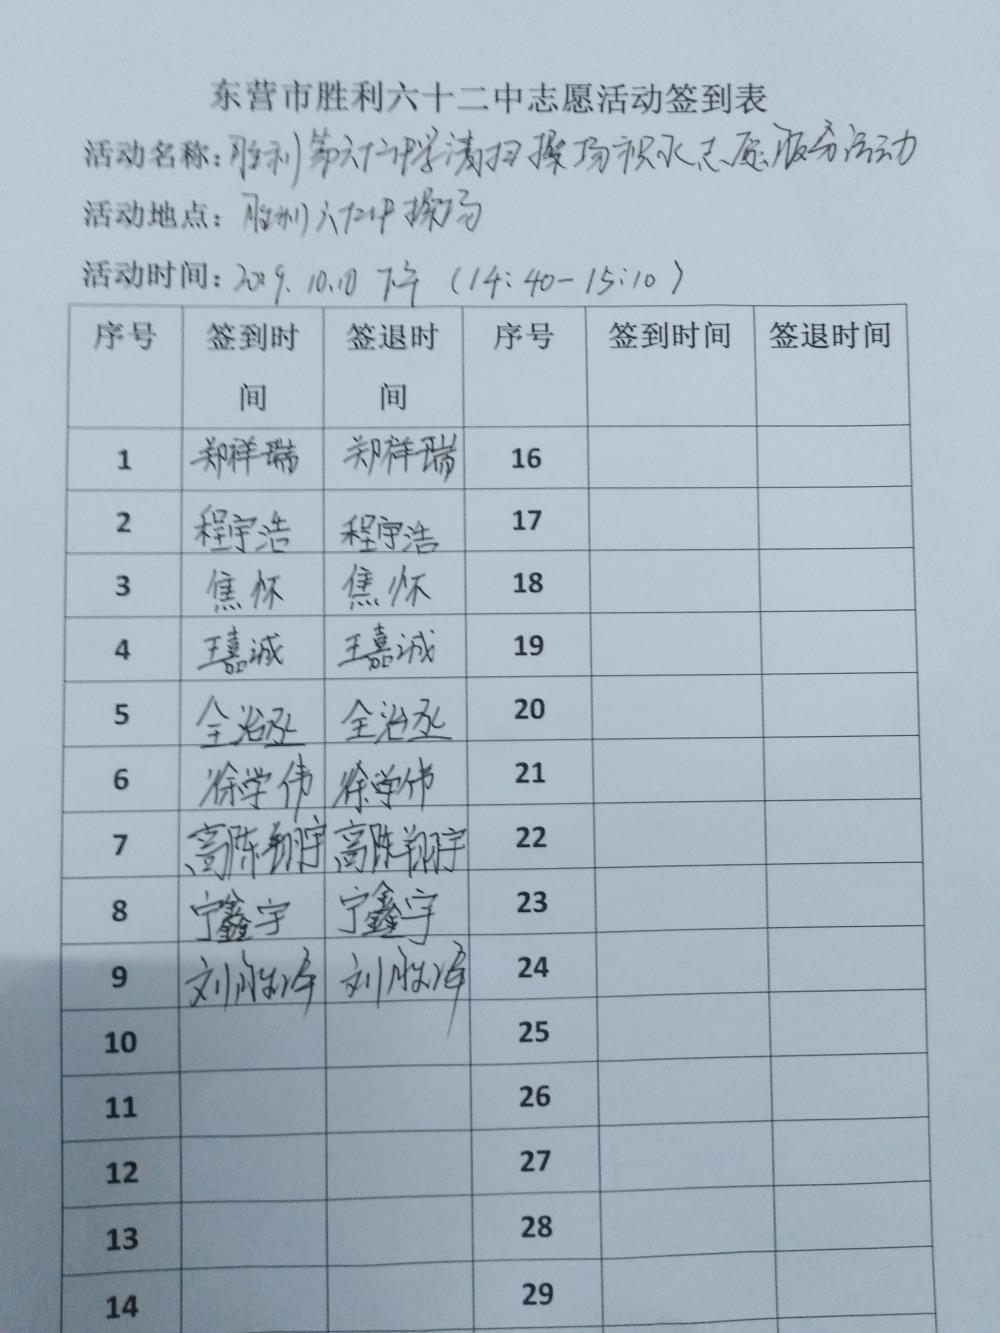 东营市胜利六十二中志愿活动签到表
活动名称:胜利第六十二中学清扫操场积水志愿服务活动
活动地点:胜利六十二中操场
活动时间:2019.10.10 下午 (14:40-15:10)
序号 签到时间 签退时间 序号 签到时间 签退时间
1 郑祥瑞 郑祥瑞 16
2 程宇浩 程宇浩 17
3 焦怀 焦怀 18
4 王嘉诚 王嘉诚 19
5 全治丞 全治丞 20
6 徐学伟 徐学伟 21
7 高陈翔宇 高陈翔宇 22
8 宁鑫宇 宁鑫宇 23
9 刘胜泽 刘胜泽 24
10 25
11 26
12 27
13 28
14 29